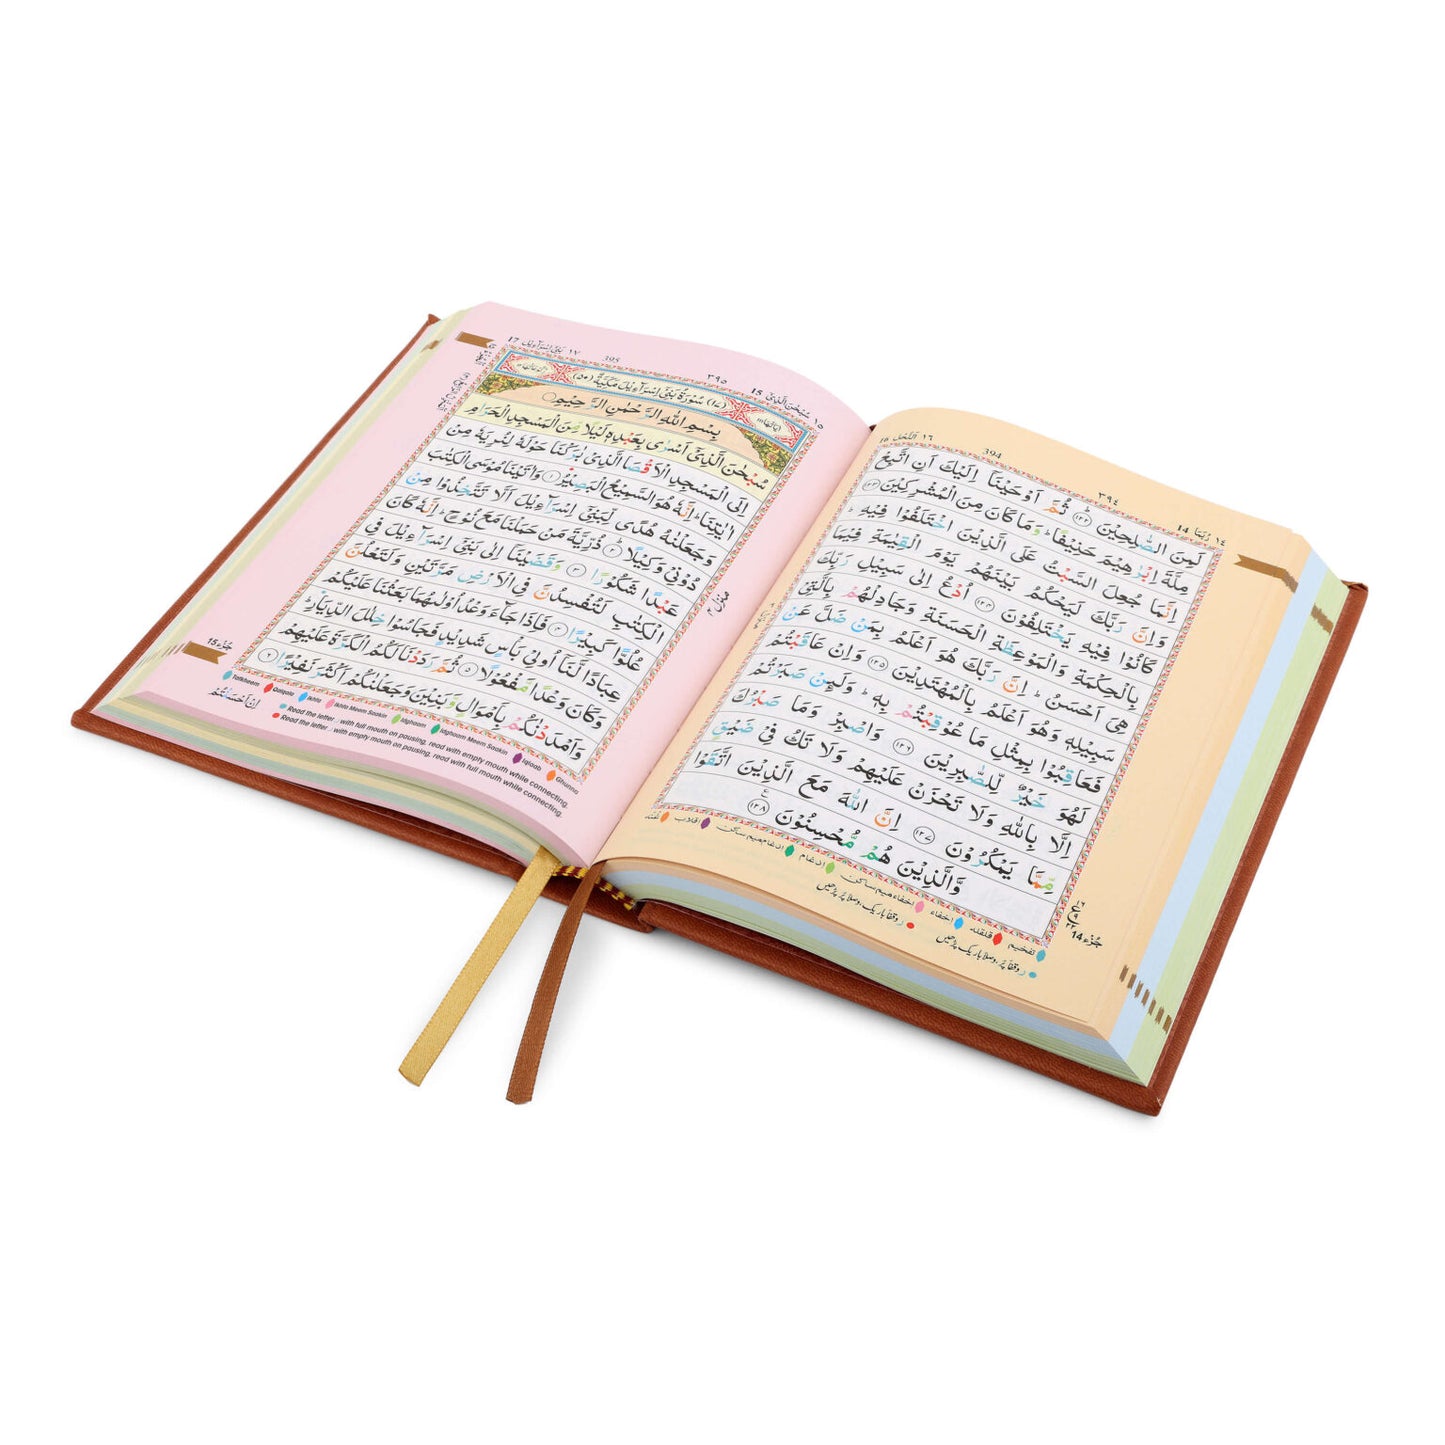 16 اَلنَّحْل ١٦ 394 ٣٩٤ 14 رُبَمَا ١٤
لَمِنَ الصّٰلِحِيْنَ ؕ ١٢٢ ثُمَّ اَوْحَيْنَاۤ اِلَيْكَ اَنِ اتَّبِعْ
مِلَّةَ اِبْرٰهِيْمَ حَنِيْفًا ؕ وَمَا كَانَ مِنَ الْمُشْرِكِيْنَ ١٢٣
اِنَّمَا جُعِلَ السَّبْتُ عَلَى الَّذِيْنَ اخْتَلَفُوْا فِيْهِ ؕ
وَاِنَّ رَبَّكَ لَيَحْكُمُ بَيْنَهُمْ يَوْمَ الْقِيٰمَةِ فِيْمَا
كَانُوْا فِيْهِ يَخْتَلِفُوْنَ ١٢٤ اُدْعُ اِلٰى سَبِيْلِ رَبِّكَ
بِالْحِكْمَةِ وَالْمَوْعِظَةِ الْحَسَنَةِ وَجَادِلْهُمْ بِالَّتِيْ
هِيَ اَحْسَنُ ؕ اِنَّ رَبَّكَ هُوَ اَعْلَمُ بِمَنْ ضَلَّ عَنْ
سَبِيْلِهٖ وَهُوَ اَعْلَمُ بِالْمُهْتَدِيْنَ ١٢٥ وَاِنْ عَاقَبْتُمْ
فَعَاقِبُوْا بِمِثْلِ مَا عُوْقِبْتُمْ بِهٖ ؕ وَلَئِنْ صَبَرْتُمْ
لَهُوَ خَيْرٌ لِّلصّٰبِرِيْنَ ١٢٦ وَاصْبِرْ وَمَا صَبْرُكَ
اِلَّا بِاللّٰهِ وَلَا تَحْزَنْ عَلَيْهِمْ وَلَا تَكُ فِيْ ضَيْقٍ
مِّمَّا يَمْكُرُوْنَ ١٢٧ اِنَّ اللّٰهَ مَعَ الَّذِيْنَ اتَّقَوْا
وَّالَّذِيْنَ هُمْ مُّحْسِنُوْنَ ١٢٨
جُزْء 14
تفخیم قلقلہ اخفاء اخفاء میم ساکن ادغام ادغام میم ساکن اقلاب غُنّہ
17 بَنِيْٓ اِسْرَآءِيْل ١٧ 395 ٣٩٥ 15 سُبْحٰنَ الَّذِيْٓ ١٥
(١٧) سُوْرَةُ بَنِيْٓ اِسْرَآءِيْلَ مَكِّيَّةٌ (٥٠)
بِسْمِ اللّٰهِ الرَّحْمٰنِ الرَّحِيْمِ
سُبْحٰنَ الَّذِيْٓ اَسْرٰى بِعَبْدِهٖ لَيْلًا مِّنَ الْمَسْجِدِ الْحَرَامِ
اِلَى الْمَسْجِدِ الْاَقْصَا الَّذِيْ بٰرَكْنَا حَوْلَهٗ لِنُرِيَهٗ مِنْ
اٰيٰتِنَا ؕ اِنَّهٗ هُوَ السَّمِيْعُ الْبَصِيْرُ ١ وَاٰتَيْنَا مُوْسَى الْكِتٰبَ
وَجَعَلْنٰهُ هُدًى لِّبَنِيْٓ اِسْرَآءِيْلَ اَلَّا تَتَّخِذُوْا مِنْ
دُوْنِيْ وَكِيْلًا ٢ ذُرِّيَّةَ مَنْ حَمَلْنَا مَعَ نُوْحٍ ؕ اِنَّهٗ كَانَ
عَبْدًا شَكُوْرًا ٣ وَقَضَيْنَآ اِلٰى بَنِيْٓ اِسْرَآءِيْلَ فِي
الْكِتٰبِ لَتُفْسِدُنَّ فِي الْاَرْضِ مَرَّتَيْنِ وَلَتَعْلُنَّ
عُلُوًّا كَبِيْرًا ٤ فَاِذَا جَآءَ وَعْدُ اُوْلٰىهُمَا بَعَثْنَا عَلَيْكُمْ
عِبَادًا لَّنَآ اُولِيْ بَاْسٍ شَدِيْدٍ فَجَاسُوْا خِلٰلَ الدِّيَارِ ؕ
وَكَانَ وَعْدًا مَّفْعُوْلًا ٥ ثُمَّ رَدَدْنَا لَكُمُ الْكَرَّةَ عَلَيْهِمْ
وَاَمْدَدْنٰكُمْ بِاَمْوَالٍ وَّبَنِيْنَ وَجَعَلْنٰكُمْ اَكْثَرَ نَفِيْرًا ٦
اِنْ اَحْسَنْتُمْ
جُزْء 15
منزل ٤
Tafkheem Qalqala Ikhfa Ikhfa Meem Saakin Idghaam Idghaam Meem Saakin Iqlaab Ghunna
Read the letter ر with full mouth on pausing, read with empty mouth while connecting.
Read the letter ر with empty mouth on pausing, read with full mouth while connecting.